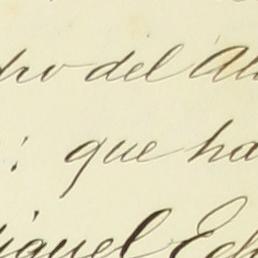 dro del Al
: que ha
iguel Ech